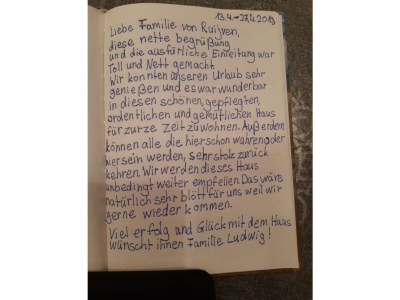 13.4.-27.4.2013
Liebe Familie von Ruijven,
diese nette begrüßung
und die ausfürliche Einleitung war
Toll und Nett gemacht.
Wir konnten unseren Urlaub sehr
genießen und es war wunderbar
in diesen schönen, gepflegten,
ordentlichen und gemütlichen Haus
für zurze Zeit zu wohnen. Außerdem
können alle die hier schon wahren oder
hier sein werden, sehr stolz zurück
kehren. Wir werden dieses Haus
unbedingt weiter empfellen. Das wäre
natürlich sehr blött für uns weil wir
gerne wieder kommen.
Viel erfolg und Glück mit dem Haus
wünscht ihnen Familie Ludwig!